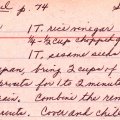 p. 74
1 T. rice vinegar
1/4-1/2 cup chopped
1 T. sesame seeds
pan, bring 2 cups of
for 1 to 2 minute
Combine the rem
Cover and chill